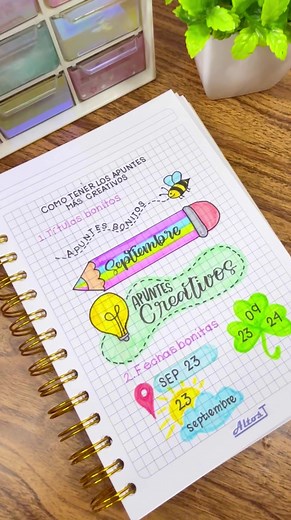 COMO TENER LOS APUNTES
MÁS CREATIVOS
1. Títulos bonitos
APUNTES BONITOS
Septiembre
APUNTES
Creativos
2. Fechas bonitas
SEP 23
09
23 24
23
septiembre
AltosT